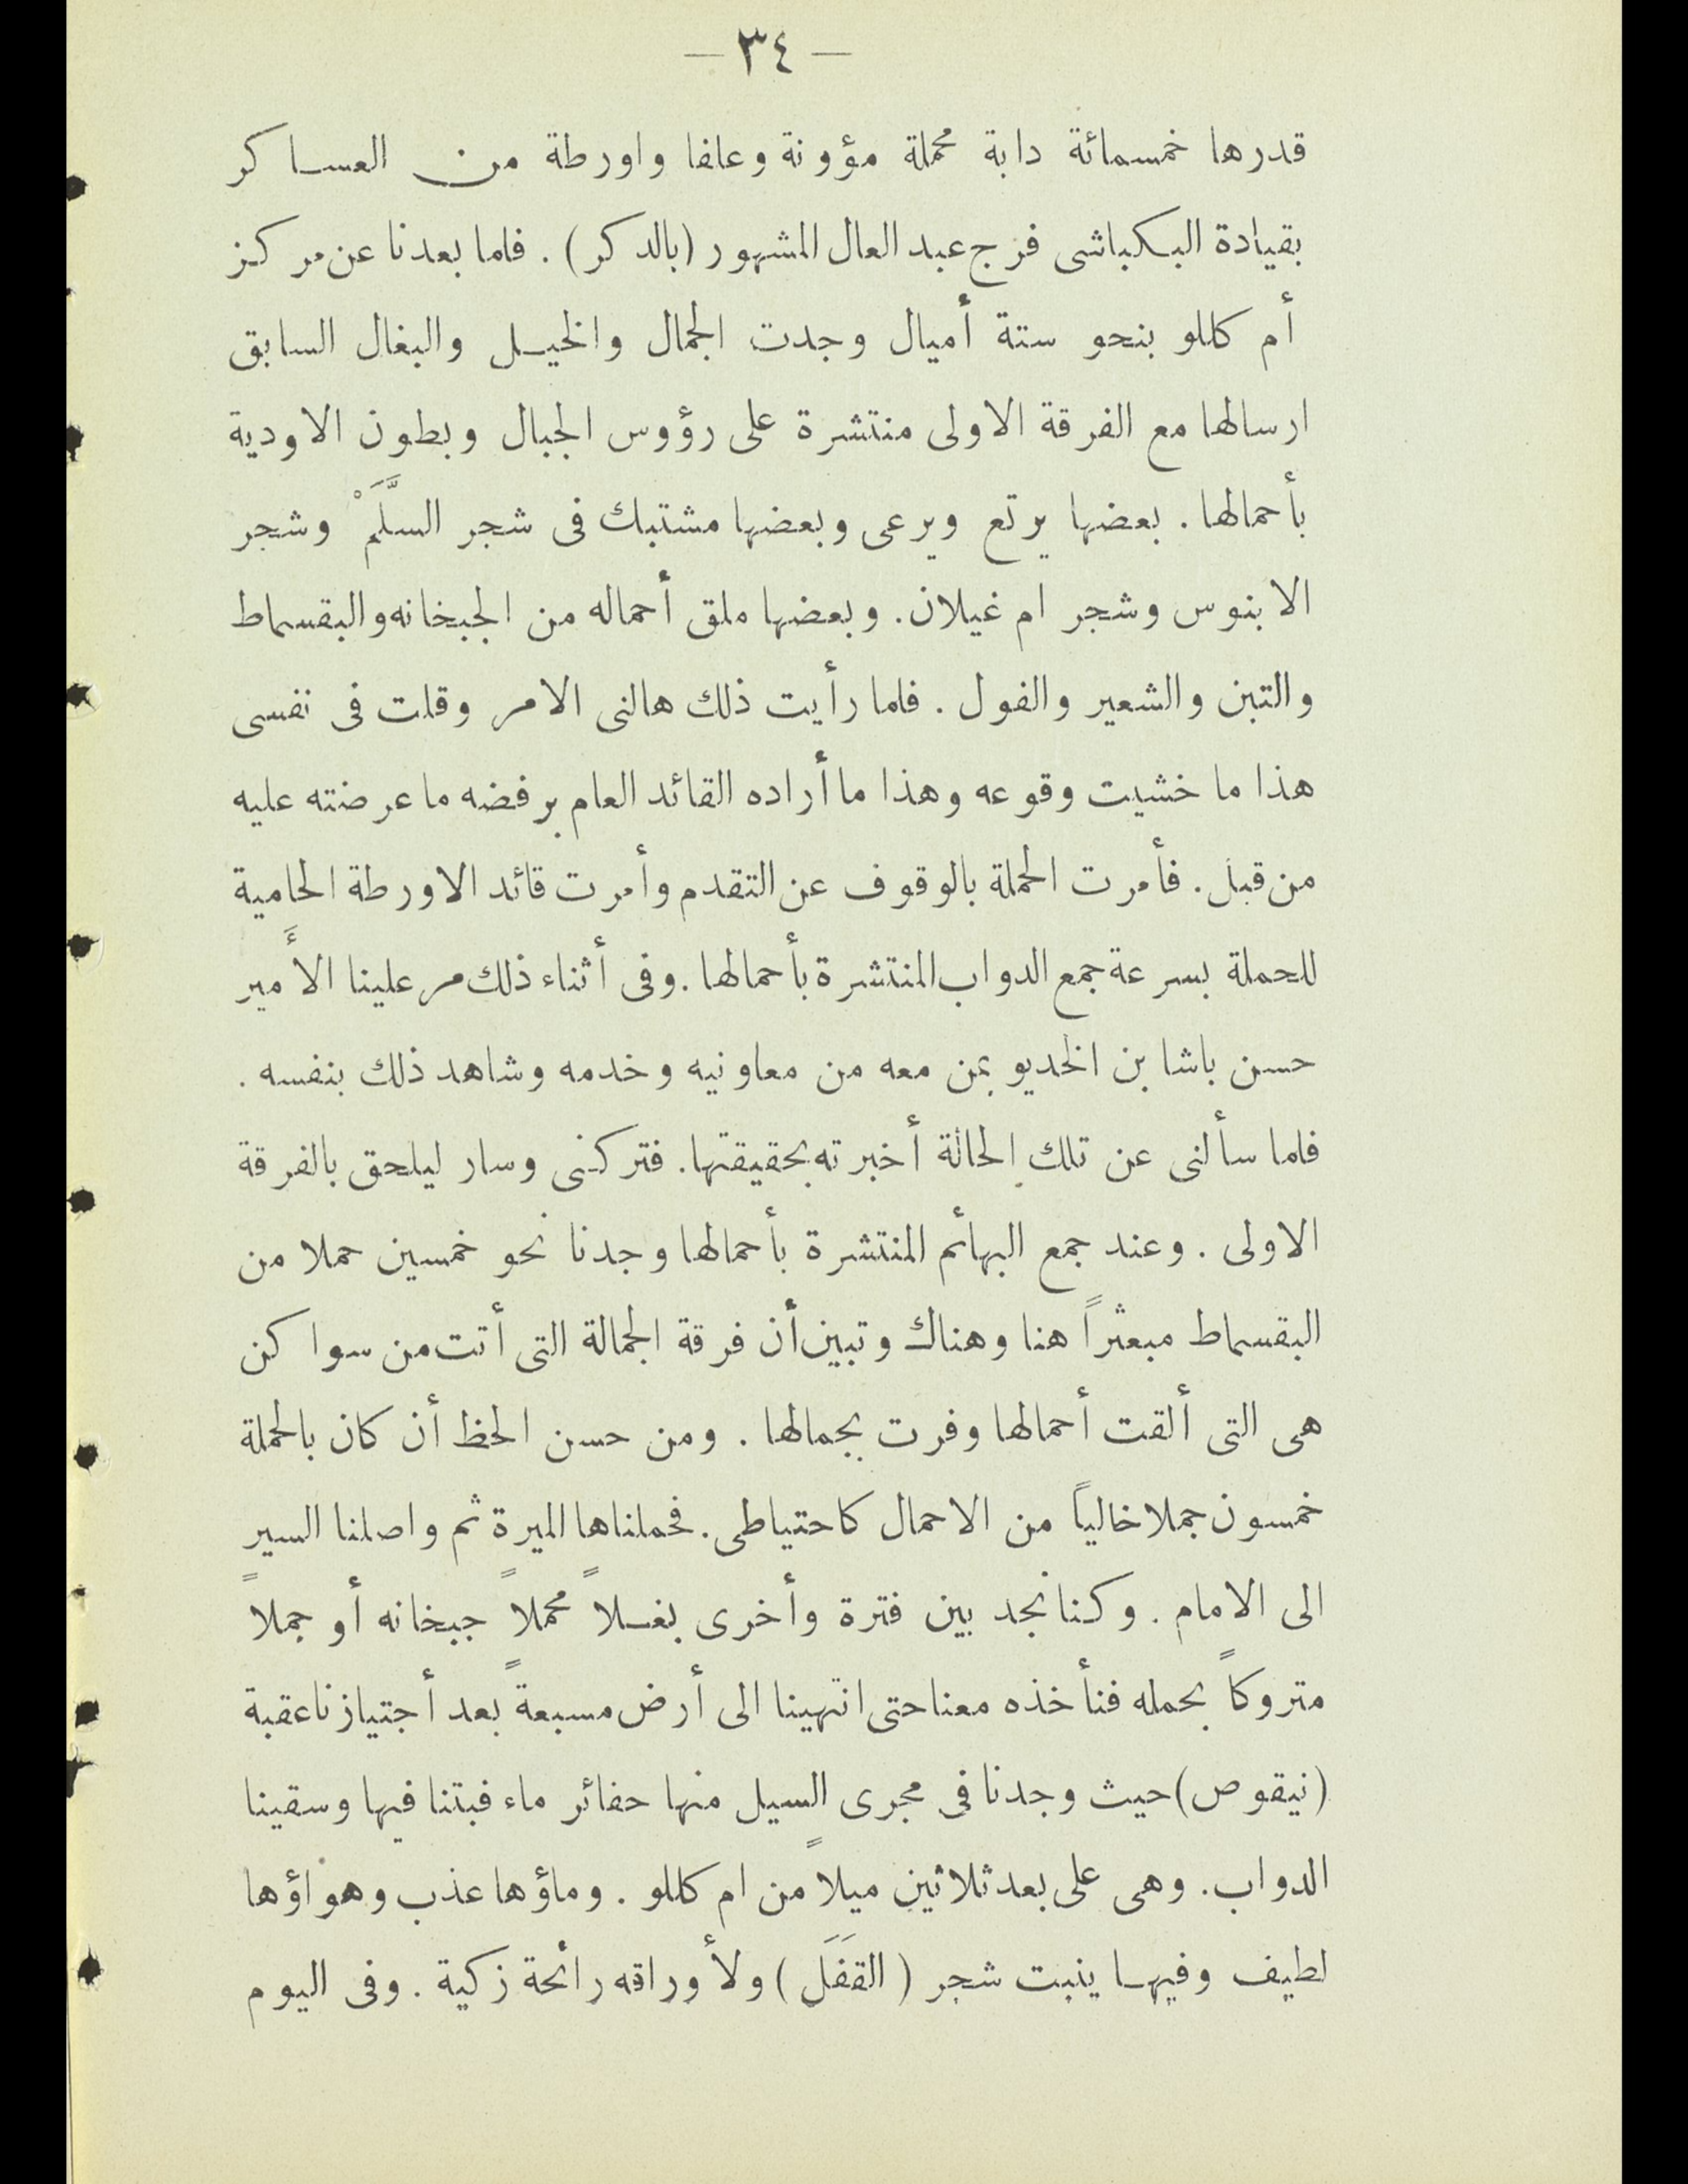 — ٣٤ —
قدرها خمسمائة دابة محملة مؤونة وعلفا واورطة من العساكر
بقيادة البكباشى فرج عبد العال المشهور (بالدكر). فلما بعدنا عن مركز
أم كللو بنحو ستة أميال وجدت الجمال والخيل والبغال السابق
ارسالها مع الفرقة الاولى منتشرة على رؤوس الجبال وبطون الاودية
بأحمالها. بعضها يرتع ويرعى وبعضها مشتبك فى شجر السَّلَمْ وشجر
الابنوس وشجر ام غيلان. وبعضها ملق أحماله من الجبخانه والبقسماط
والتبن والشعير والفول. فلما رأيت ذلك هالنى الامر وقلت فى نفسى
هذا ما خشيت وقوعه وهذا ما أراده القائد العام برفضه ما عرضته عليه
من قبل. فأمرت الحملة بالوقوف عن التقدم وأمرت قائد الاورطة الحامية
للحملة بسرعة جمع الدواب المنتشرة بأحمالها. وفى أثناء ذلك مر علينا الأَمير
حسن باشا بن الخديو بمن معه من معاونيه وخدمه وشاهد ذلك بنفسه.
فلما سألنى عن تلك الحالة أخبرته بحقيقتها. فتركنى وسار ليلحق بالفرقة
الاولى. وعند جمع البهائم المنتشرة بأحمالها وجدنا نحو خمسين حملا من
البقسماط مبعثراً هنا وهناك وتبين أن فرقة الجمالة التى أتت من سواكن
هى التى ألقت أحمالها وفرت بجمالها. ومن حسن الحظ أن كان بالحملة
خمسون جملا خالياً من الاحمال كاحتياطى. فحملناها الميرة ثم واصلنا السير
الى الامام. وكنا نجد بين فترة وأخرى بغلاً محملاً جبخانه أو جملاً
متروكاً بحمله فنأخذه معنا حتى انتهينا الى أرض مسبعةً بعد أجتيازنا عقبة
(نيقوص) حيث وجدنا فى مجرى السيل منها حفائر ماء فبتنا فيها وسقينا
الدواب. وهى على بعد ثلاثين ميلاً من ام كللو. وماؤها عذب وهواؤها
لطيف وفيها ينبت شجر (القفَلَ) ولأوراقه رائحة زكية. وفى اليوم